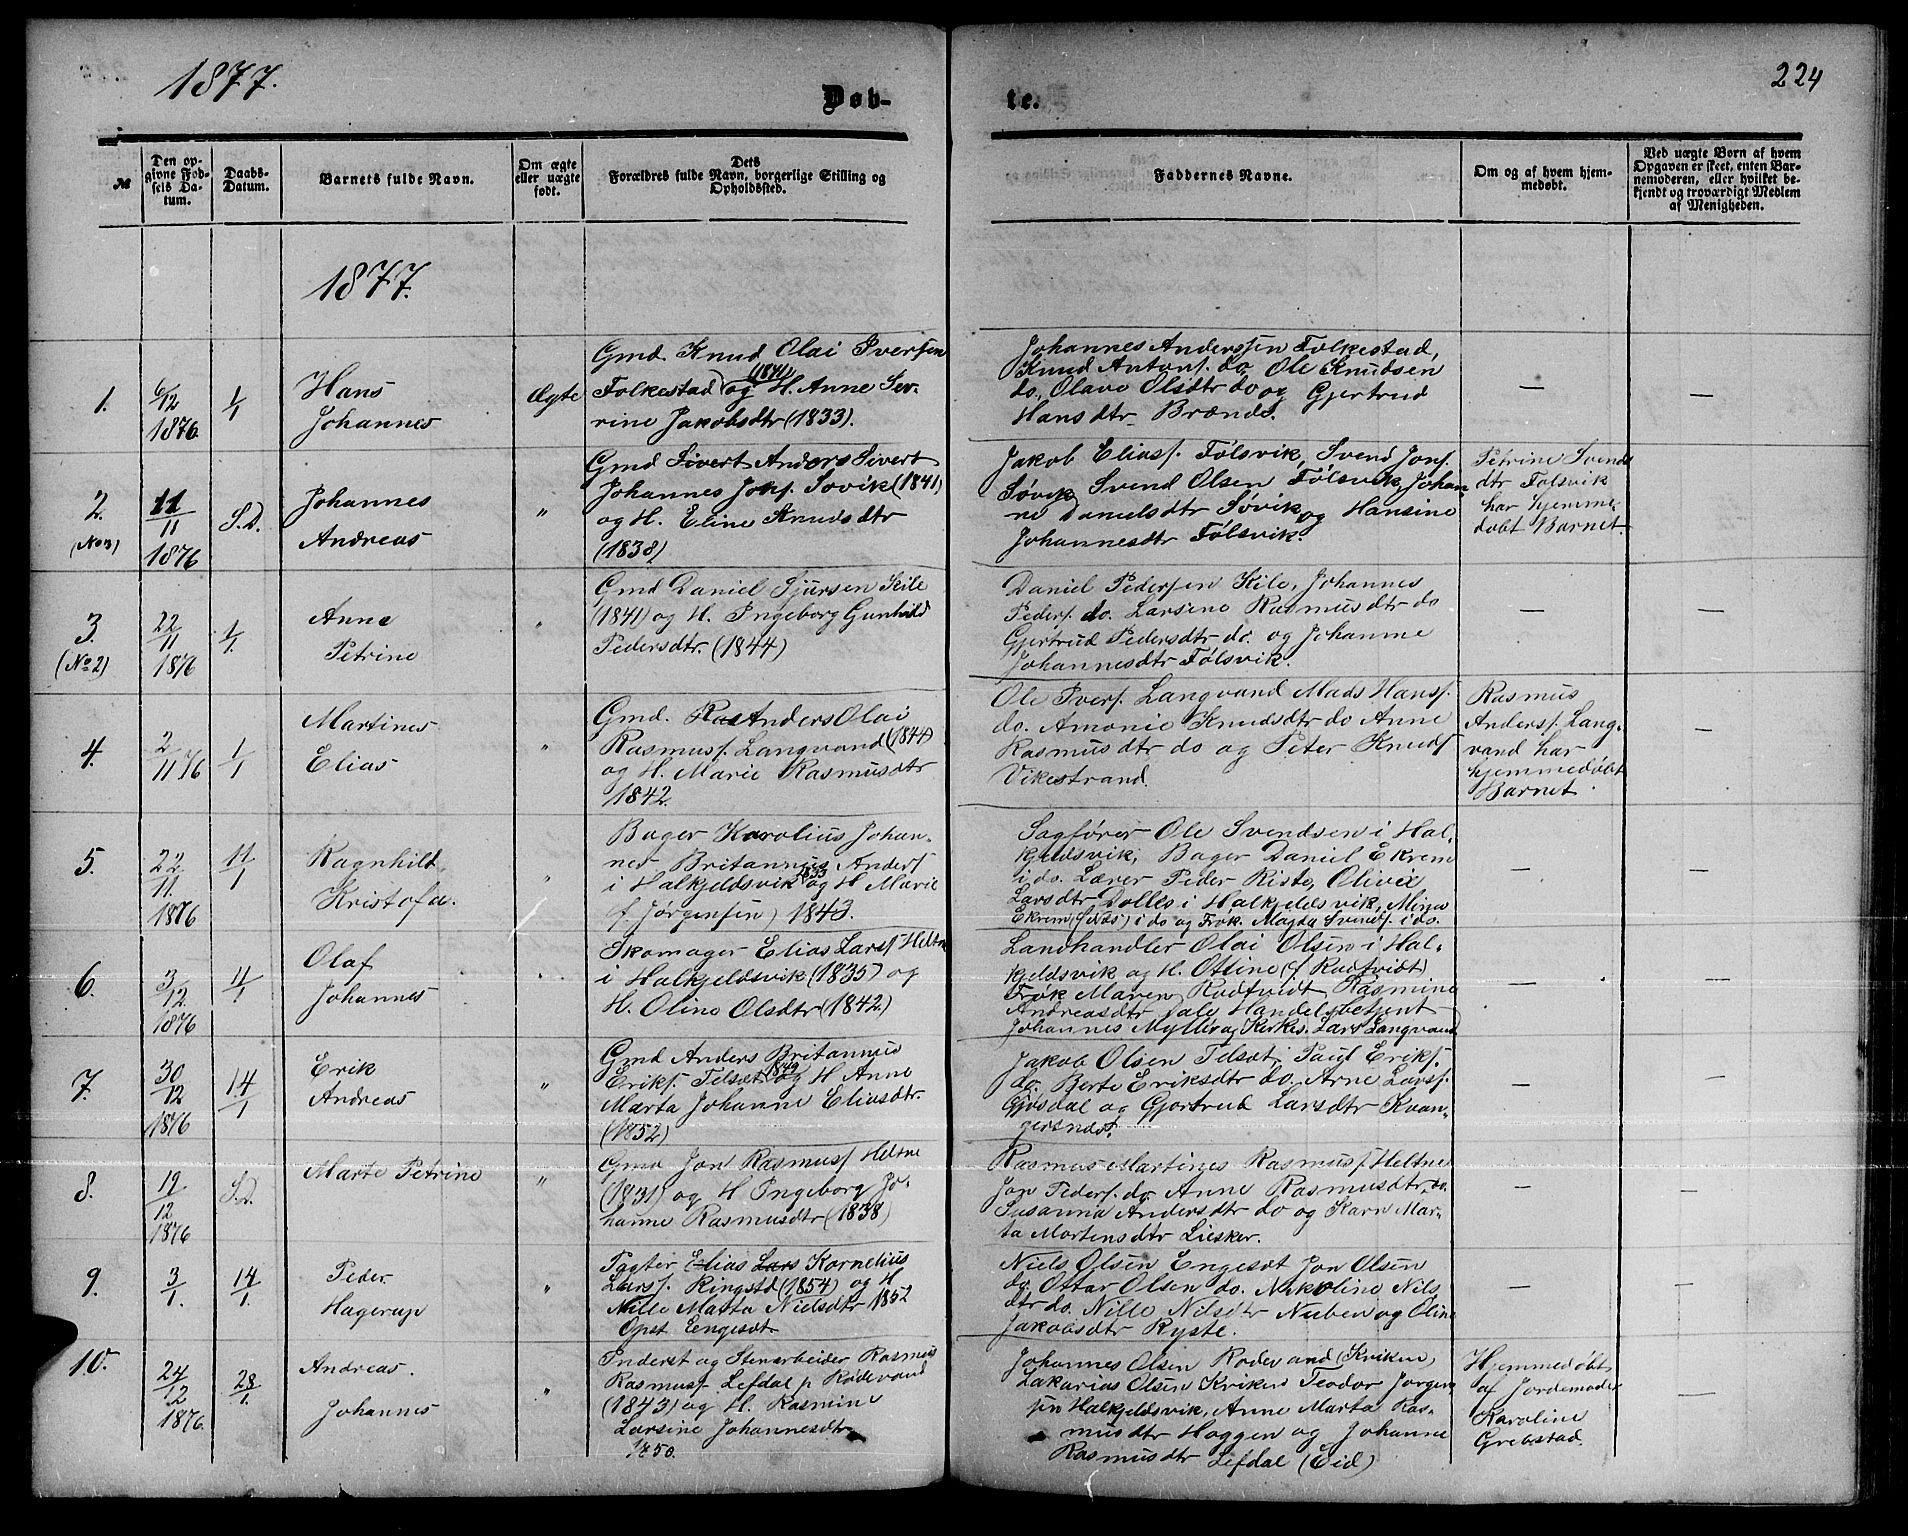 1877.
Døb-
te.
224
№
Den op-
givne Fød-
sels Da-
tum.
Daabs-
Datum.
Barnets fulde Navn.
Om ægte
eller uægte
født.
Dets
Forældres fulde Navn, borgerlige Stilling og
Opholdssted.
Faddernes Navne.
Om og af hvem hjem-
medøbt.
Ved uægte Børn af hvem
Opgaven er skeet, enten Bar-
nemoderen, eller hvilket be-
kjendt og troværdigt Medlem
af Menigheden.
1877.
1.
6/12
1876
1/1
Hans
Johannes
Ægte
Gmd. Knud Olai Iversen
Folkestad (1841) og H. Anne Sev-
rine Jakobsdtr (1833).
Johannes Anderssen Folkestad,
Knud Antonf. do, Ole Knudsen
do, Olave Olsdtr do og Gjertrud
Hansdtr Brænde.
—
—
2.
(No 3)
11/11
1876
S.D.
Johannes
Andreas
"
Gmd Sivert Anders Sivert
Johannes Jonf. Søvik (1841)
og H. Eline Knudsdtr
(1838)
Jakob Eliasf. Følsvik, Svend Jonf.
Søvik, Svend Olsen Følsvik, Johan-
ne Danielsdtr Søvik og Hansine
Johannesdtr Følsvik.
Petrine Svends
dtr Følsvik
har hjemme-
døbt Barnet.
3.
(No 2)
22/11
1876
1/1
Anne
Petrine
"
Gmd Daniel Sjursen Kile
(1841) og H. Ingeborg Gunhild
Pedersdtr. (1844)
Daniel Pedersen Kile, Johannes
Pedersf. do. Larsine Rasmusdtr do
Gjertrud Pedersdtr do. og Johanne
Johannesdtr Følsvik.
—
—
4.
2/11 76
1/1
Martines
Elias
"
Gmd. Ras Anders Olai
Rasmusf. Langvand (1844)
og H. Marie Rasmusdtr
1842.
Ole Iversf. Langvand Mads Hansf.
do. Amonie Knudsdtr do Anne
Rasmusdtr do og Peter Knudsf
Vikestrand.
Rasmus
Andersf. Lang-
vand har
hjemmedøbt
Barnet.
—
5.
22/11.
1876
11/1
Ragnhild
Kristofa.
"
Bager Karolius Johan-
nes Britannius Andersf
i Halkjeldsvik 1833 og H Marie
(f. Jørgensen) 1843.
Sagfører Ole Svendsen i Hal-
kjeldsvik, Bager Daniel Ekrem
i do. Lærer Peder Riste, Olivie
Larsdtr Dolles i Halkjeldsvik, Mina
Ekrem i do og Frøk. Magda Svendsf. i do.
—
—
6.
3/12.
1876
11/1
Olaf
Johannes
"
Skomager Elias Larsf Heltne
i Halkjeldsvik (1835) og
H. Oline Olsdtr (1842)
Landhandler Olai Olsen i Hal-
kjeldsvik og H. Otline (f. Rodtvidt)
Frøk Maren Rodtvidt Rasmine
Andreasdtr Dale, Handelsbetjent
Johannes Myller og Kirkes. Lars Langvand
—
—
7.
30/12
1876
14/1
Erik
Andreas
"
Gmd Anders Britannius
Eriksf. Telsæt 1849 og H Anne
Marta Johanne Eliasdtr.
(1852)
Jakob Olsen Telset, Paul Eriksf.
do. Berte Eriksdtr do. Arne Larsf.
Gjøsdal og Gjertrud Larsdtr Kvan-
gersnes.
—
—
8.
19/12
1876
S.D.
Marte Petrine
"
Gmd Jon Rasmusf Heltne
(1831) og H Ingeborg Jo-
hanne Rasmusdtr (1838)
Rasmus Martines Rasmusf. Heltne
Jon Pedersf. do. Anne Rasmusdtr do.
Susanna Andersdtr do og Karn Mar-
ta Mortensdtr Liesker.
—
—
9.
3/1.
14/1.
Peder
Hagerup
"
Pagter Elias Lars Kornelius
Larsf. Ringstd (1854) og H
Nille Marta Nielsdtr 1852
Opst. Eengesæt.
Niels Olsen Engesæt Jon Olsen
do. Ottar Olsen do. Nikoline Nils-
dtr do. Nille Nilsdtr Nuben og Oline
Jakobsdtr Ryste.
—
—
10.
24/12
1876.
28/1.
Andreas.
Johannes
"
Inderst og Stenarbeider Rasmus
Rasmusf Lefdal p Rødevand
(1843) og H. Rasmine
Larsine Johannesdtr
1850.
Johannes Olsen Rødevand (Kriken)
Zakarias Olsen Kriken Teodor Jørgen-
sen Halkjeldsvik, Anne Marta Ras-
musdtr Haggen og Johanne
Rasmusdtr Lefdal (Eid)
Hjemmedøbt
af Jordemoder
Karoline
Grebstad.
—